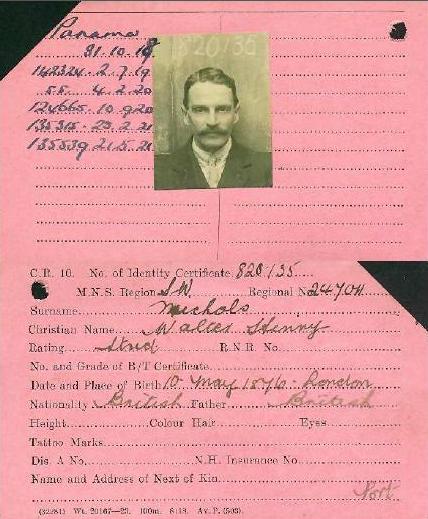 Panama
31.10.18
142324. 2.7.19
55. 4.2.20
124665. 10.9.20
135315. 23.2.21
135539 21.5.21
820/35
C.R. 10. No. of Identity Certificate. 820/35
M.N.S. Region S.W. Regional No. 24704
Surname Nichols
Christian Name Walter Henry
Rating Stwd R.N.R. No.
No. and Grade of B/T Certificate
Date and Place of Birth 10 May 1876. London
Nationality British Father British
Height Colour Hair Eyes
Tattoo Marks
Dis. A No. N.H. Insurance No.
Name and Address of Next of Kin
(32281) Wt. 20167—23. 100m. 8/18. Av. P. (503).